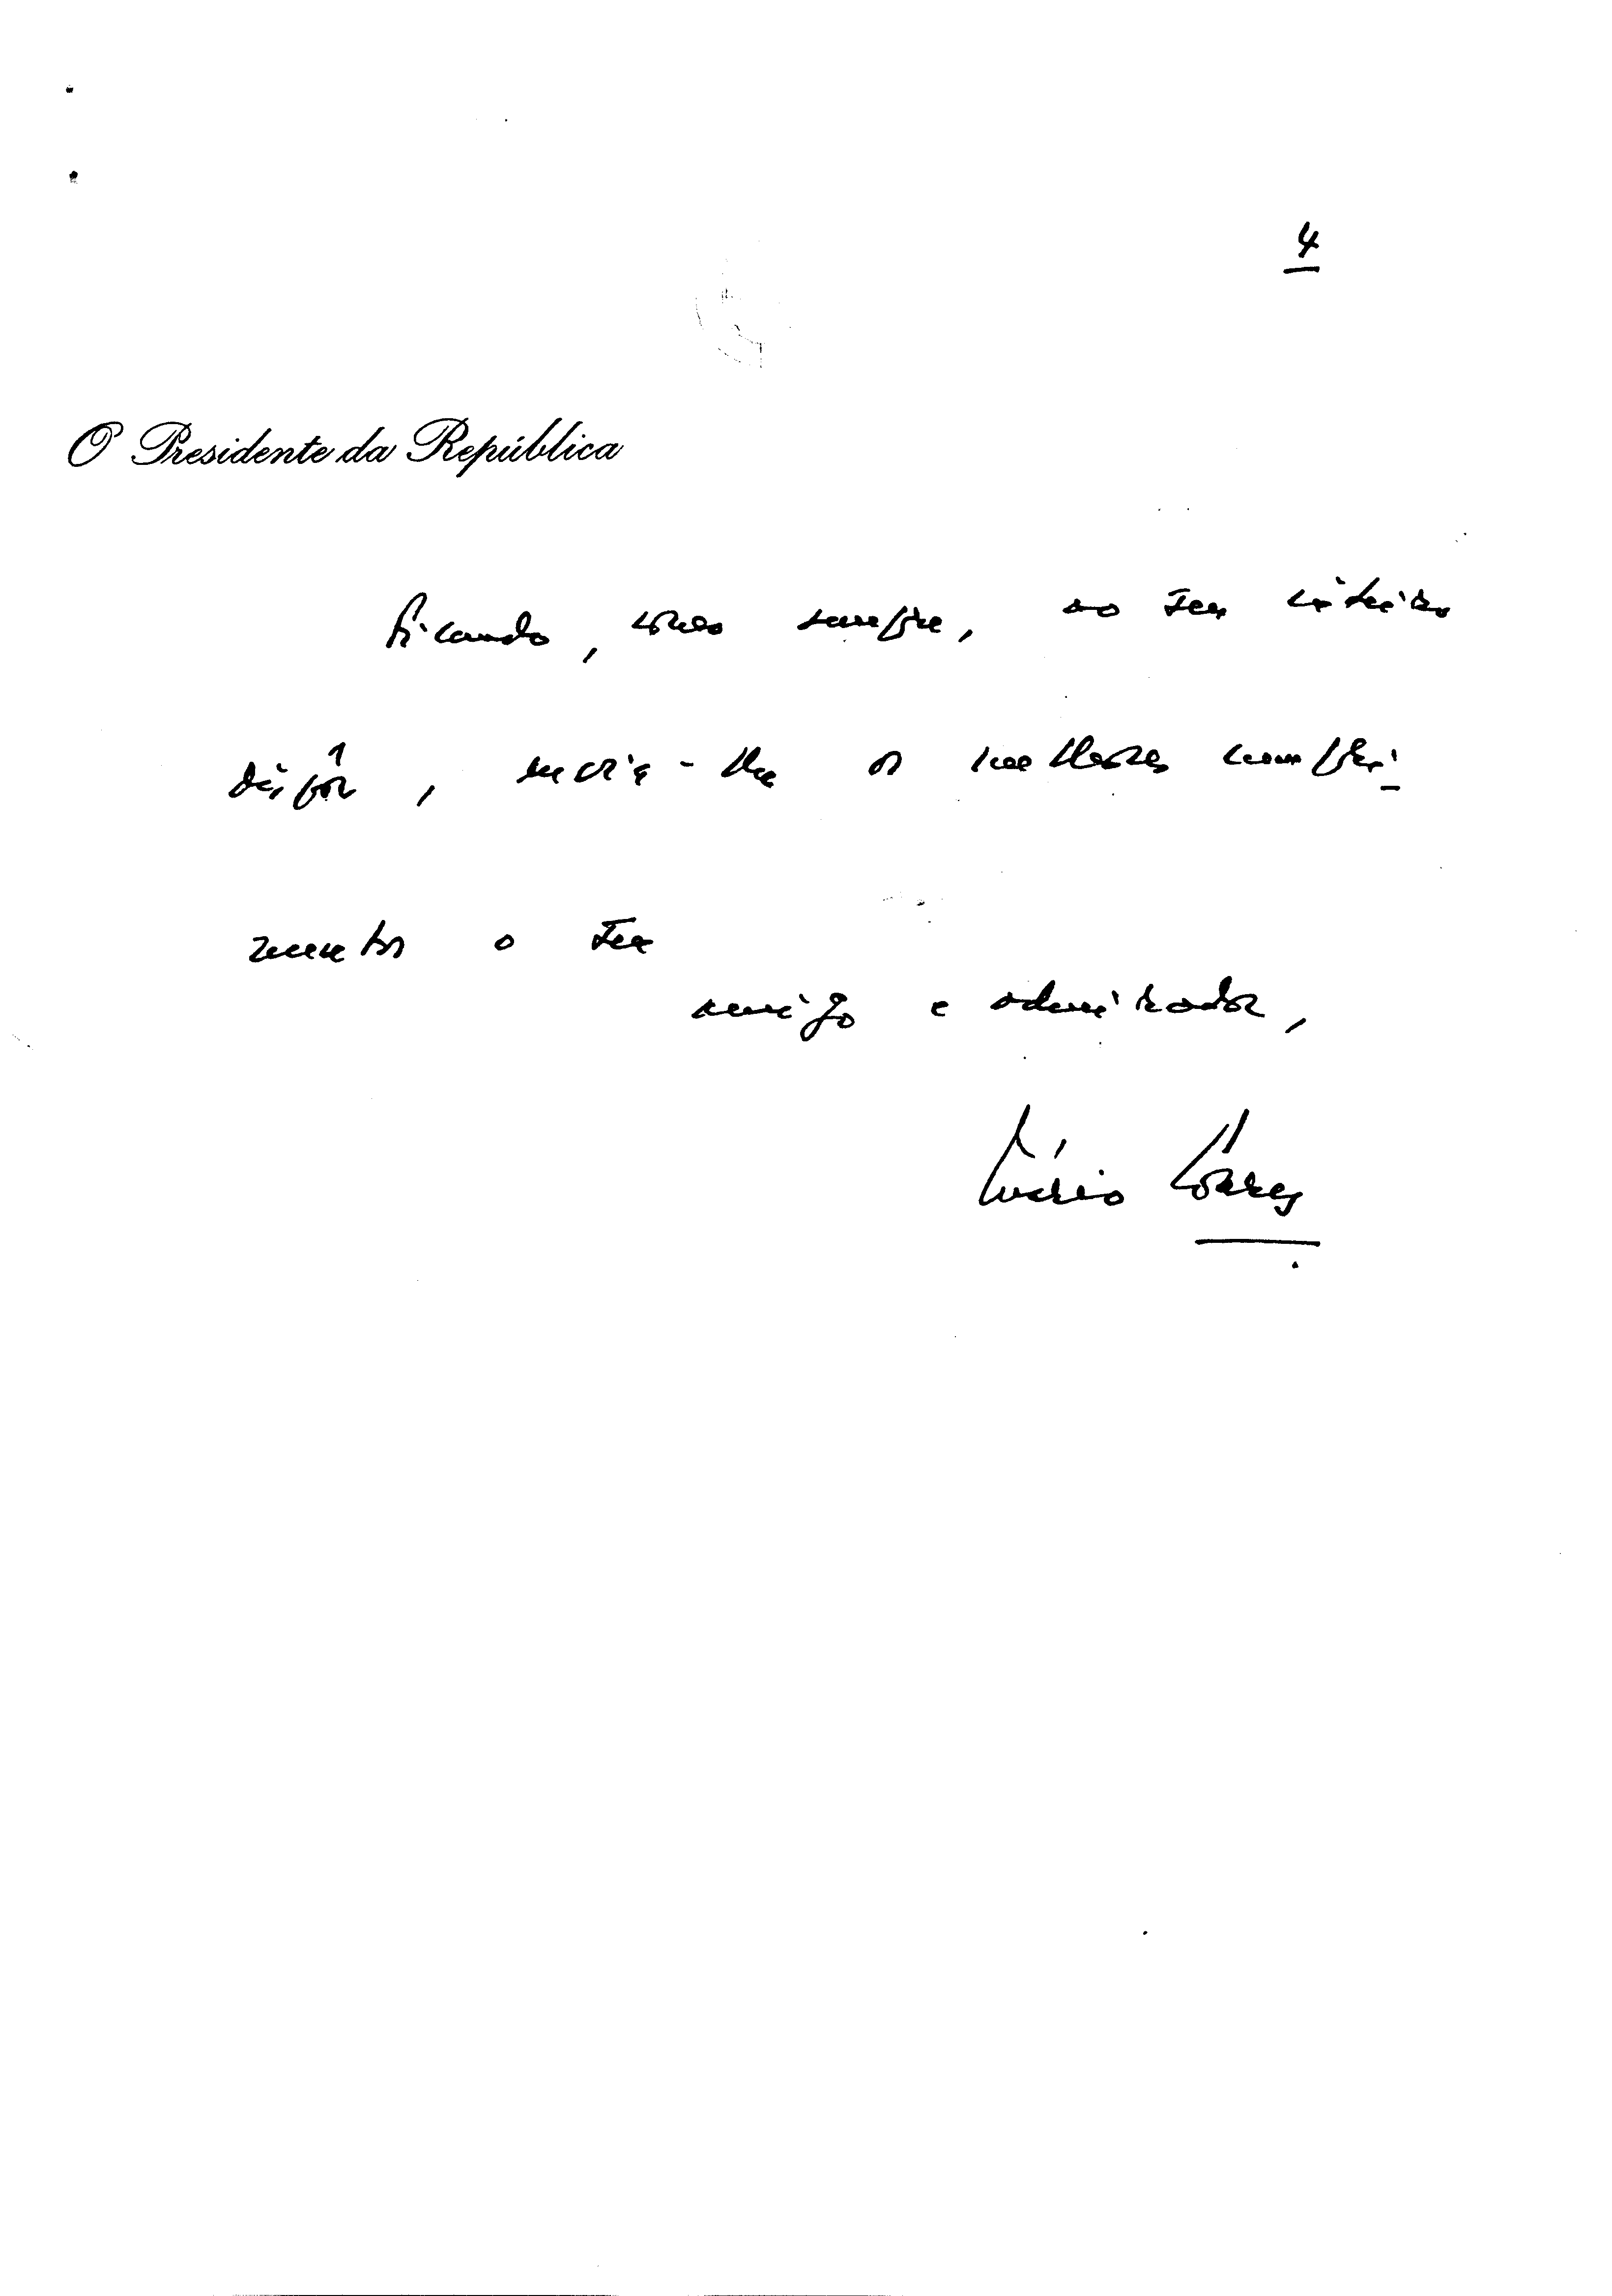 4
O Presidente da República
ficando, como sempre, ao seu inteiro
dispôr, envia-lhe os melhores cumpri-
mentos o seu
amigo e admirador,
Mário Soares